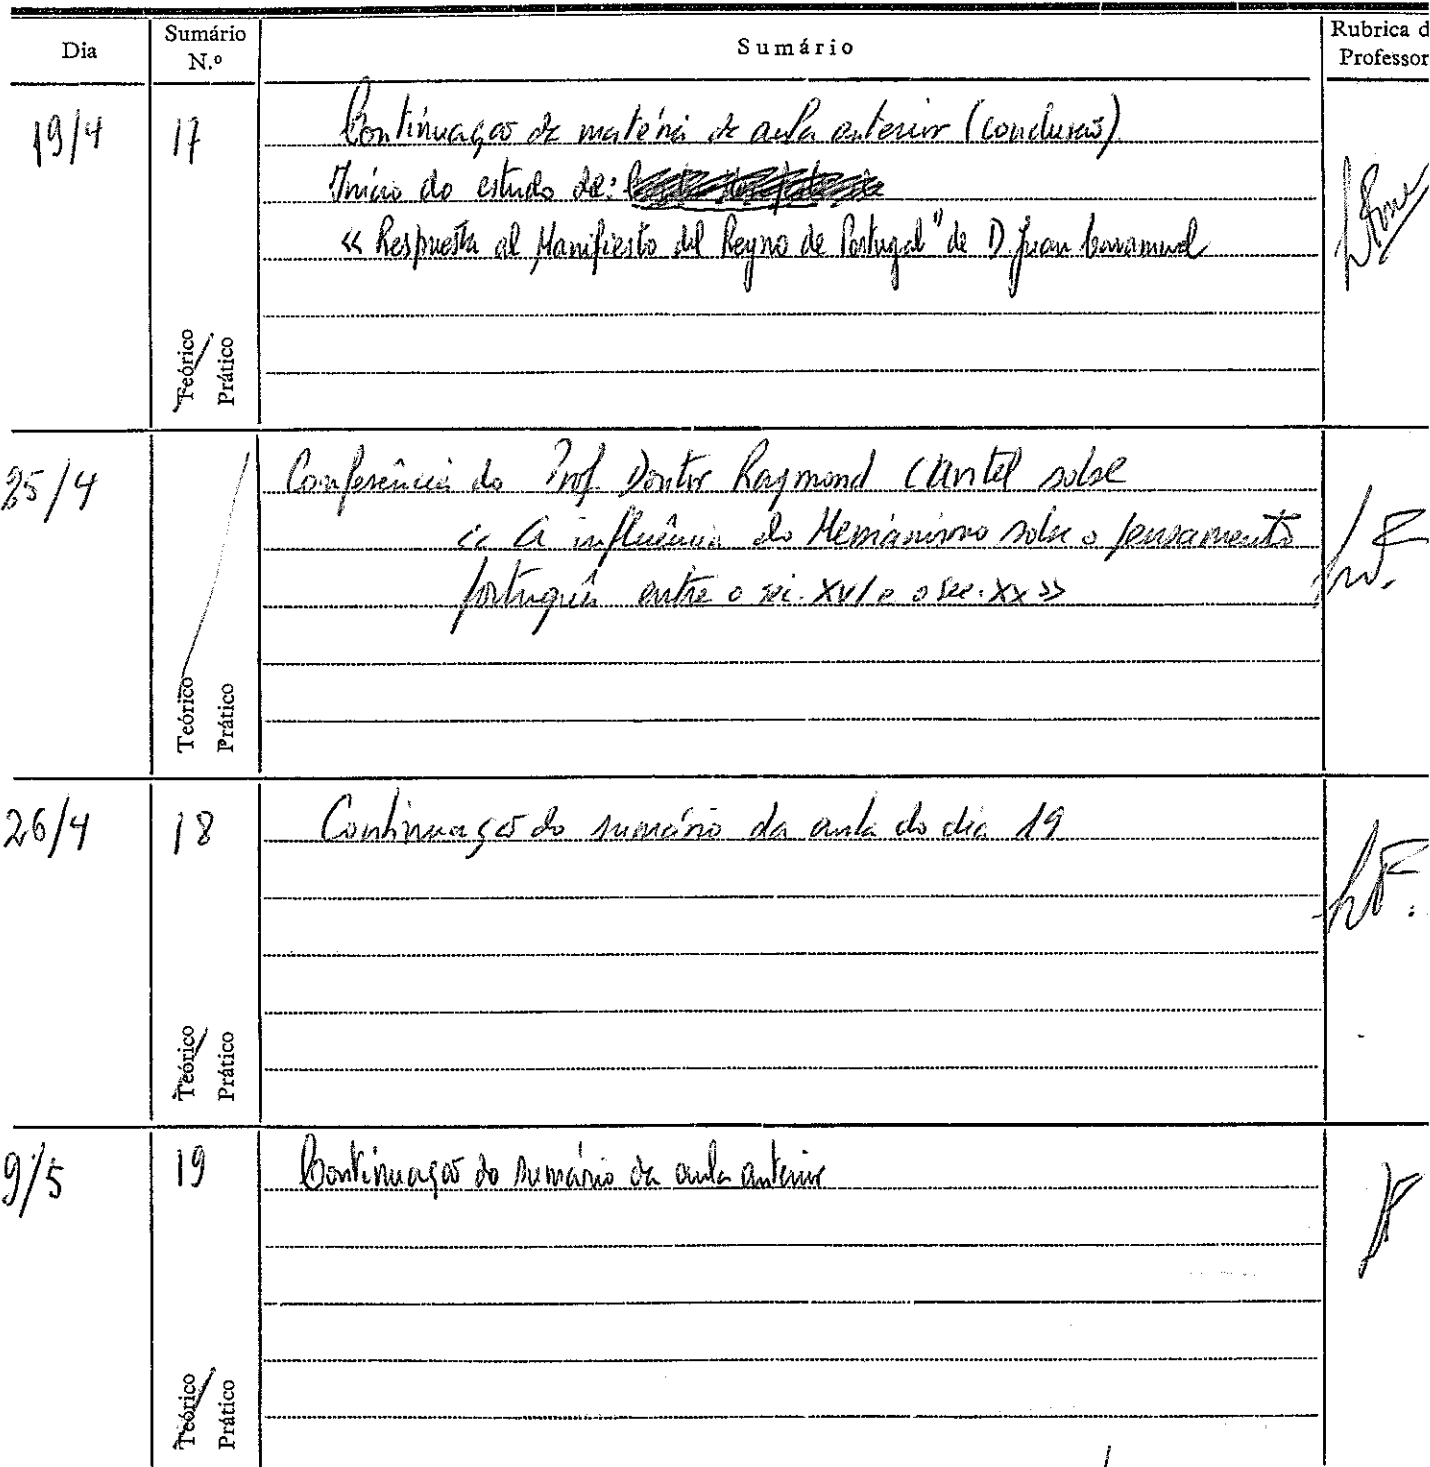 Dia Sumário N.º Sumário Rubrica d Professor
19/4 17 Continuação da matéria da aula anterior (conclusão)
Início do estudo de:
« Respuesta al Manifiesto del Reyno de Portugal" de D. Juan Caramuel
Teórico Prático
25/4 Conferência do Prof. Doutor Raymond Cantel sobre
« A influência do Messianismo sobre o pensamento
português entre o séc. XVI e o séc. XX »
Teórico Prático
26/4 18 Continuação do sumário da aula do dia 19
Teórico Prático
9/5 19 Continuação do sumário da aula anterior
Teórico Prático